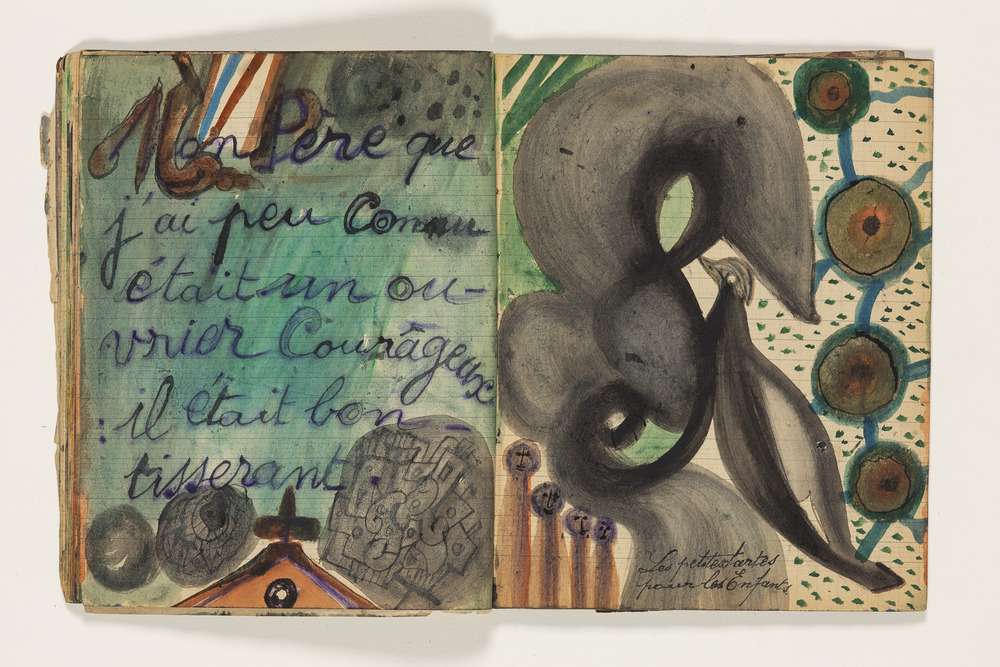 Mon Père que
j'ai peu Connu
était un ou-
vrier Courâgeux
il était bon
tisserant.
Les petites tartes
pour les Enfants